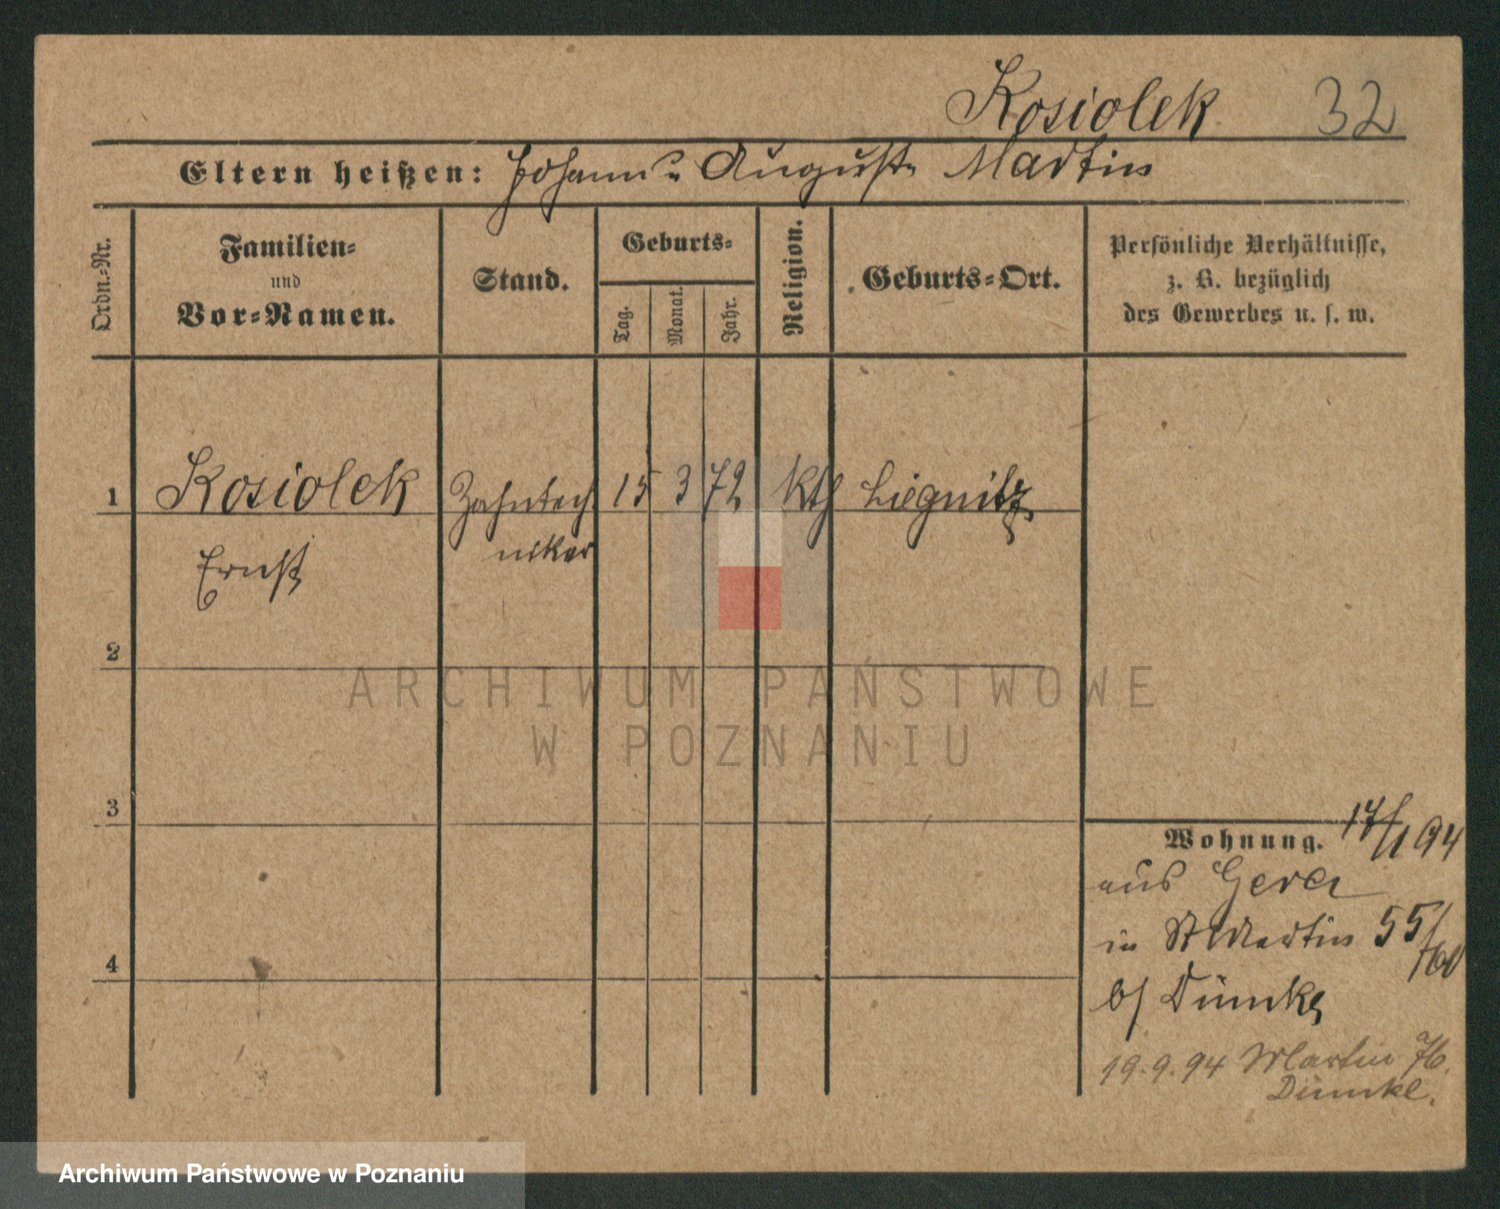 Kosiolek 32
Eltern heißen: Johann u. Auguste Martin
Ordn.-Nr.
Familien-
und
Vor-Namen.
Stand.
Geburts-
Tag.
Monat.
Jahr.
Religion.
Geburts-Ort.
Persönliche Verhältnisse,
z. B. bezüglich
des Gewerbes u. s. w.
1 Kosiolek Zahntech 15 3 72 kth Liegnitz
Ernst niker
2
3
4
Wohnung. 17/1 94
aus Gera
in St Martin 55/
b/ Dümke
19.9.94 Martin 76.
Dümke.
ARCHIWUM PAŃSTWOWE
W POZNANIU
Archiwum Państwowe w Poznaniu